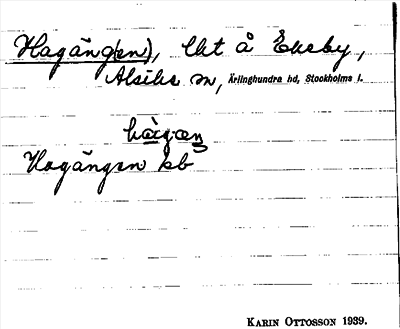 Hagäng(en), lht å Ekeby,
Alsike sn, Ärlinghundra hd, Stockholms l.
Hagängen kb
KARIN OTTOSSON 1939.